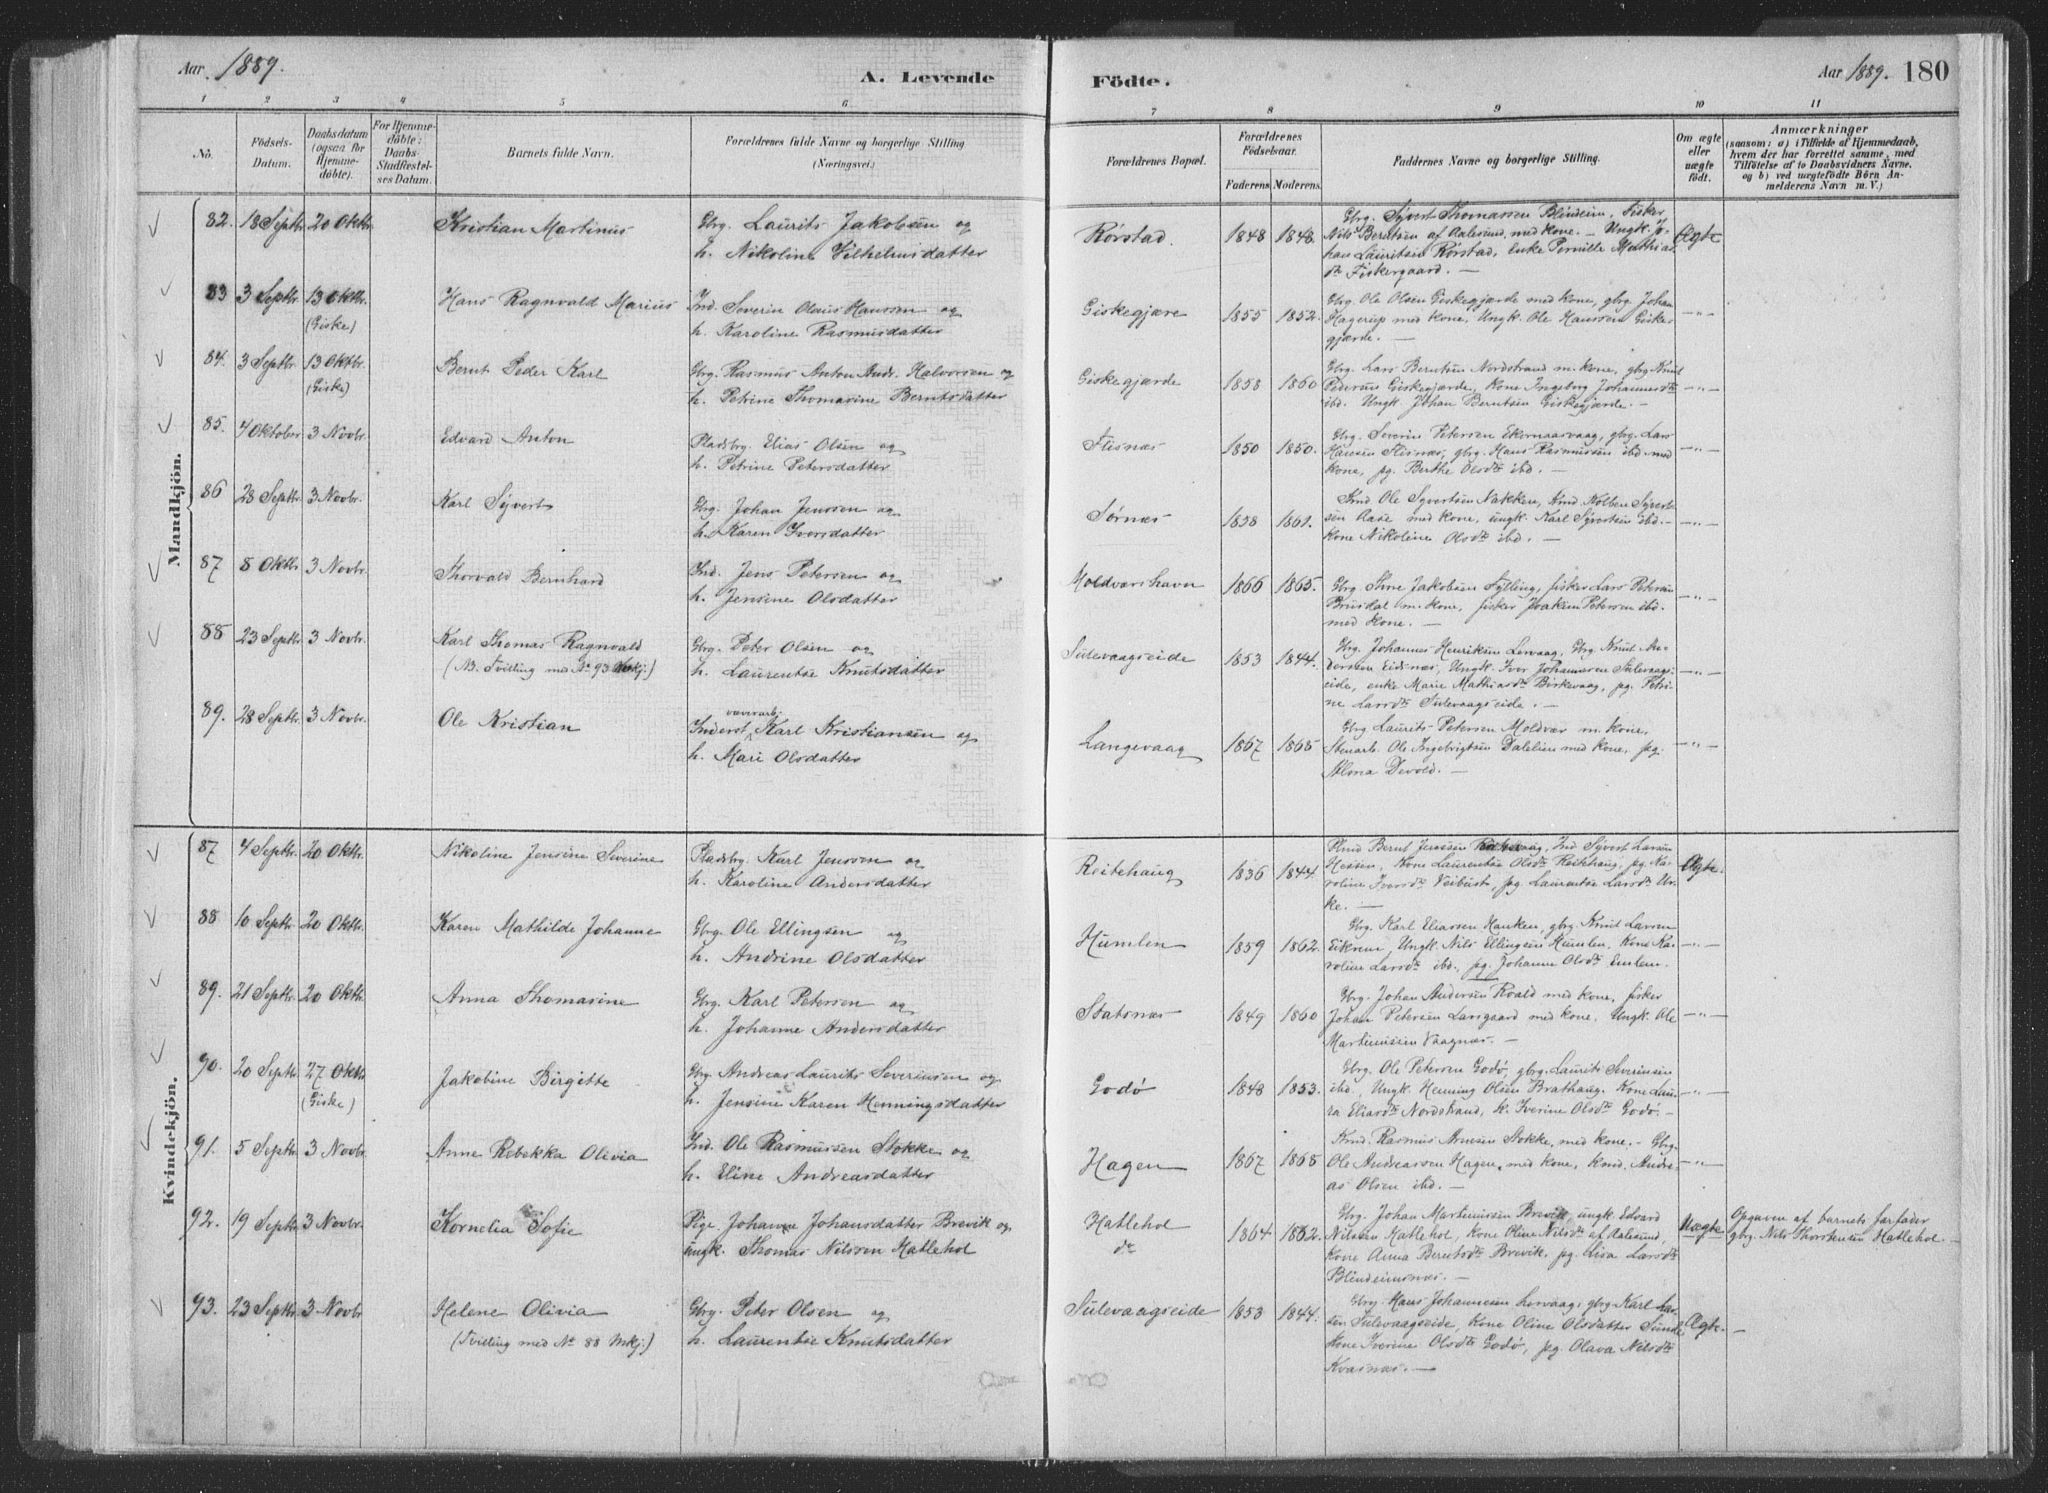 Aar. 1889.
A. Levende
Födte.
Aar 1889. 180
1 2 3 4 5 6 7 8 9 10 11
No.
Födsels-Datum.
Daabsdatum (ogsaa for Hjemmedöbte).
For Hjemmedöbte: Daabs-Stadfestelses Datum.
Barnets fulde Navn.
Forældrenes fulde Navne og borgerlige Stilling (Næringsvei.)
Forældrenes Bopæl.
Forældrenes Födselsaar.
Faderens Moderens.
Faddernes Navne og borgerlige Stilling.
Om ægte eller uægte födt.
Anmærkninger
(saasom: a) i Tilfælde af Hjemmedaab, hvem der har forrettet samme, med Tilföielse af to Daabsvidners Navne, og b) ved uægtefödte Börn Anmelderens Navn m. V.)
Mandkjön.
82. 18 Septbr. 20 Oktbr. Kristian Martinus Gbrg. Laurits Jakobsen og
h. Nikoline Vilhelmsdatter
Rörstad. 1848 1848. Gbrg. Syvert Thomassen Blindeim, Fisker
Nils Berntsen af Aalesund, med kone. – Ungk. Jo-
han Lauritsen Rörstad, enke Pernille Mathias
dtr Fiskergaard. —
Ægte
83 3 Septbr. 13 Oktbr. (Giske) Hans Ragnvald Marius Ind. Severin Olaus Hanssen og
h. Karoline Rasmusdatter
Giskegjære 1855 1852. Gbrg. Ole Olsen Giskegjærde med kone, gbrg. Johan
Hagerup med kone, Ungk. Ole Hanssen Giske-
gjærde. —
—"—
84. 3 Septbr. 13 Oktbr (Giske) Bernt Peder Karl Gbrg. Rasmus Anton Andr. Halvorsen og
h. Petrine Thomasine Berntsdatter
Giskegjærde 1858 1860 Gbrg. Lars Berntsen Nordstrand m. kone, gbrg Knut
Pedersen Giskegjærde, kone Ingeborg Johannesdtr
ibd. Ungk. Johan Berntsen Giskegjærde. —
—"—
85. 4 Oktober 3 Novbr. Edvard Anton Pladsbrg. Elias Olsen og
h. Petrine Petersdatter
Flisnæs 1850 1850. Gbrg. Severin Petersen Ekornaasvaag, gbrg. Lars
Hansen Flisnæs, gbrg. Hans Rasmussen ibd. med
kone, pg. Berthe Olsdtr ibd. —
—"—
86 28 Septbr. 3 Novbr. Karl Syvert Gbrg. Johan Jenssen og
h. Karen Iversdatter
Sørnæs 1858 1861. Kmd Ole Syvertsen Nakken, Kmd. Kolben Syvert-
sen Aase med kone, ungk. Karl Syvertsen ibd. –
Kone Nikoline Olsdtr ibd. —
—"—
87 8 Oktbr. 3 Novbr. Thorvald Bernhard Ind. Jens Petersen og
h. Jensine Olsdatter
Moldvarshavn 1866 1865. Gbrg Sivert Jakobsen Fylling, fisker Lars Petersen
Brusdal m. kone, fisker Joakim Petersen ibd.
med kone. —
—"—
88 23 Septbr. 3 Novbr. Karl Thomas Ragnvald
(NB. Tvilling med No 93 Kvkj.)
Gbrg. Peter Olsen og
h. Laurentse Knutsdatter
Sulevaagseide 1853 1844. Gbrg. Johannes Henriksen Lervaag, Gbrg. Knut An-
dersen Eidsnæs, Ungk. Iver Johannesen Sulevaags-
eide, enke Marie Mathiasdtr Birkevaag, pg. Petri-
ne Larsdtr Sulevaagseide. —
—"—
89. 28 Septbr. 3 Novbr. Ole Kristian Inderst væverarb. Karl Kristiansen og
h. Mari Olsdatter
Langevaag 1867 1865 Gbrg Laurits Petersen Moldvær m. kone,
Stenarb. Ole Ingebrigtsen Dalelien med kone, pg.
Alma Devold. —
—"—
Kvindekjön.
87 4 Septbr. 20 Oktbr. Nikoline Jensine Severine Pladsbrg. Karl Jenssen og
h. Karoline Andersdatter
Reitehaug 1836 1844. Kmd Bernt Jenssen, Ind Syvert Larsen
Hessen, Kone Laurentse Olsdtr Reitehaug, pg. Ka-
roline Iversdtr Veibust, pg. Laurentse Larsdtr Ur-
ke. —
Ægte.
88. 10 Septbr. 20 Oktbr. Karen Mathilde Johanne Gbrg. Ole Ellingsen og
h. Andrine Olsdatter
Humlen 1859 1862. Gbrg. Karl Eliassen Hanken, gbrg. Knut Larsen
Eikrem, Ungk. Nils Ellingsen Humlen, Kone Ka-
roline Larsdtr ibd., pg. Johanne Olsdtr Emlem.
—"—
89. 21 Septbr. 20 Oktbr. Anna Thomasine Gbrg. Karl Petersen og
h. Johanne Andersdatter
Statsnæs 1849 1860 Gbrg. Johan Andersen Roald med kone, fisker
Johan Petersen Larsgaard med kone. Ungk. Ole
Martinussen Vaagnæs. —
—"—
90. 20 Septbr. 27 Oktbr. (Giske) Jakobine Birgitte Gbrg. Andreas Laurits Severinsen og
h. Jensine Karen Henningsdatter
Godø 1848 1853. Gbrg. Ole Petersen Godø, gbrg. Laurits Severinsen
ibd., Ungk. Henning Olsen Brathaug, Kone Lau-
ra Eliasdtr Nordstrand, K. Iverine Olsdtr Godø. –
—"—
91. 5 Septbr. 3 Novbr. Anne Rebekka Olivia Ind. Ole Rasmussen Stokke og
h. Eline Andreasdatter
Hagen 1867 1868 Kmd. Rasmus Arnesen Stokke, med kone. – Gbrg.
Ole Andreassen Hagen, med kone, kmd. Andre-
as Olsen ibd. —
—"—
92. 19 Septbr. 3 Novbr. Kornelia Sofie Pige. Johanne Johansdatter Brevik og
ungk. Thomas Nilsen Hatlehol
Hatlehol
do
1864 1862. Gbrg. Johan Martinussen Brevik, ungk. Edvard
Nilssen Hatlehol, Kone Oline Nilsdtr af Aalesund,
Kone Anna Berntsdtr Brevik, pg. Lisa Larsdtr
Blindeimsnæs. —
Uægte Opgaven af barnets farfader
gbrg. Nils Thorstensen Hatlehol. –
93. 23 Septbr. 3 Novbr. Helene Olivia
(Tvilling med No 88 Mkj.)
Gbrg. Peter Olsen og
h. Laurentse Knutsdatter
Sulevaagseide 1853 1844. Gbrg. Hans Johannesen Lervaag, gbrg. Karl Lar-
sen Sulevaagseide, Kone Oline Olsdatter Sunde
Kone Iverine Olsdtr Godø, pg. Olava Nilsdtr
Kvasnæs. —
Ægte. —